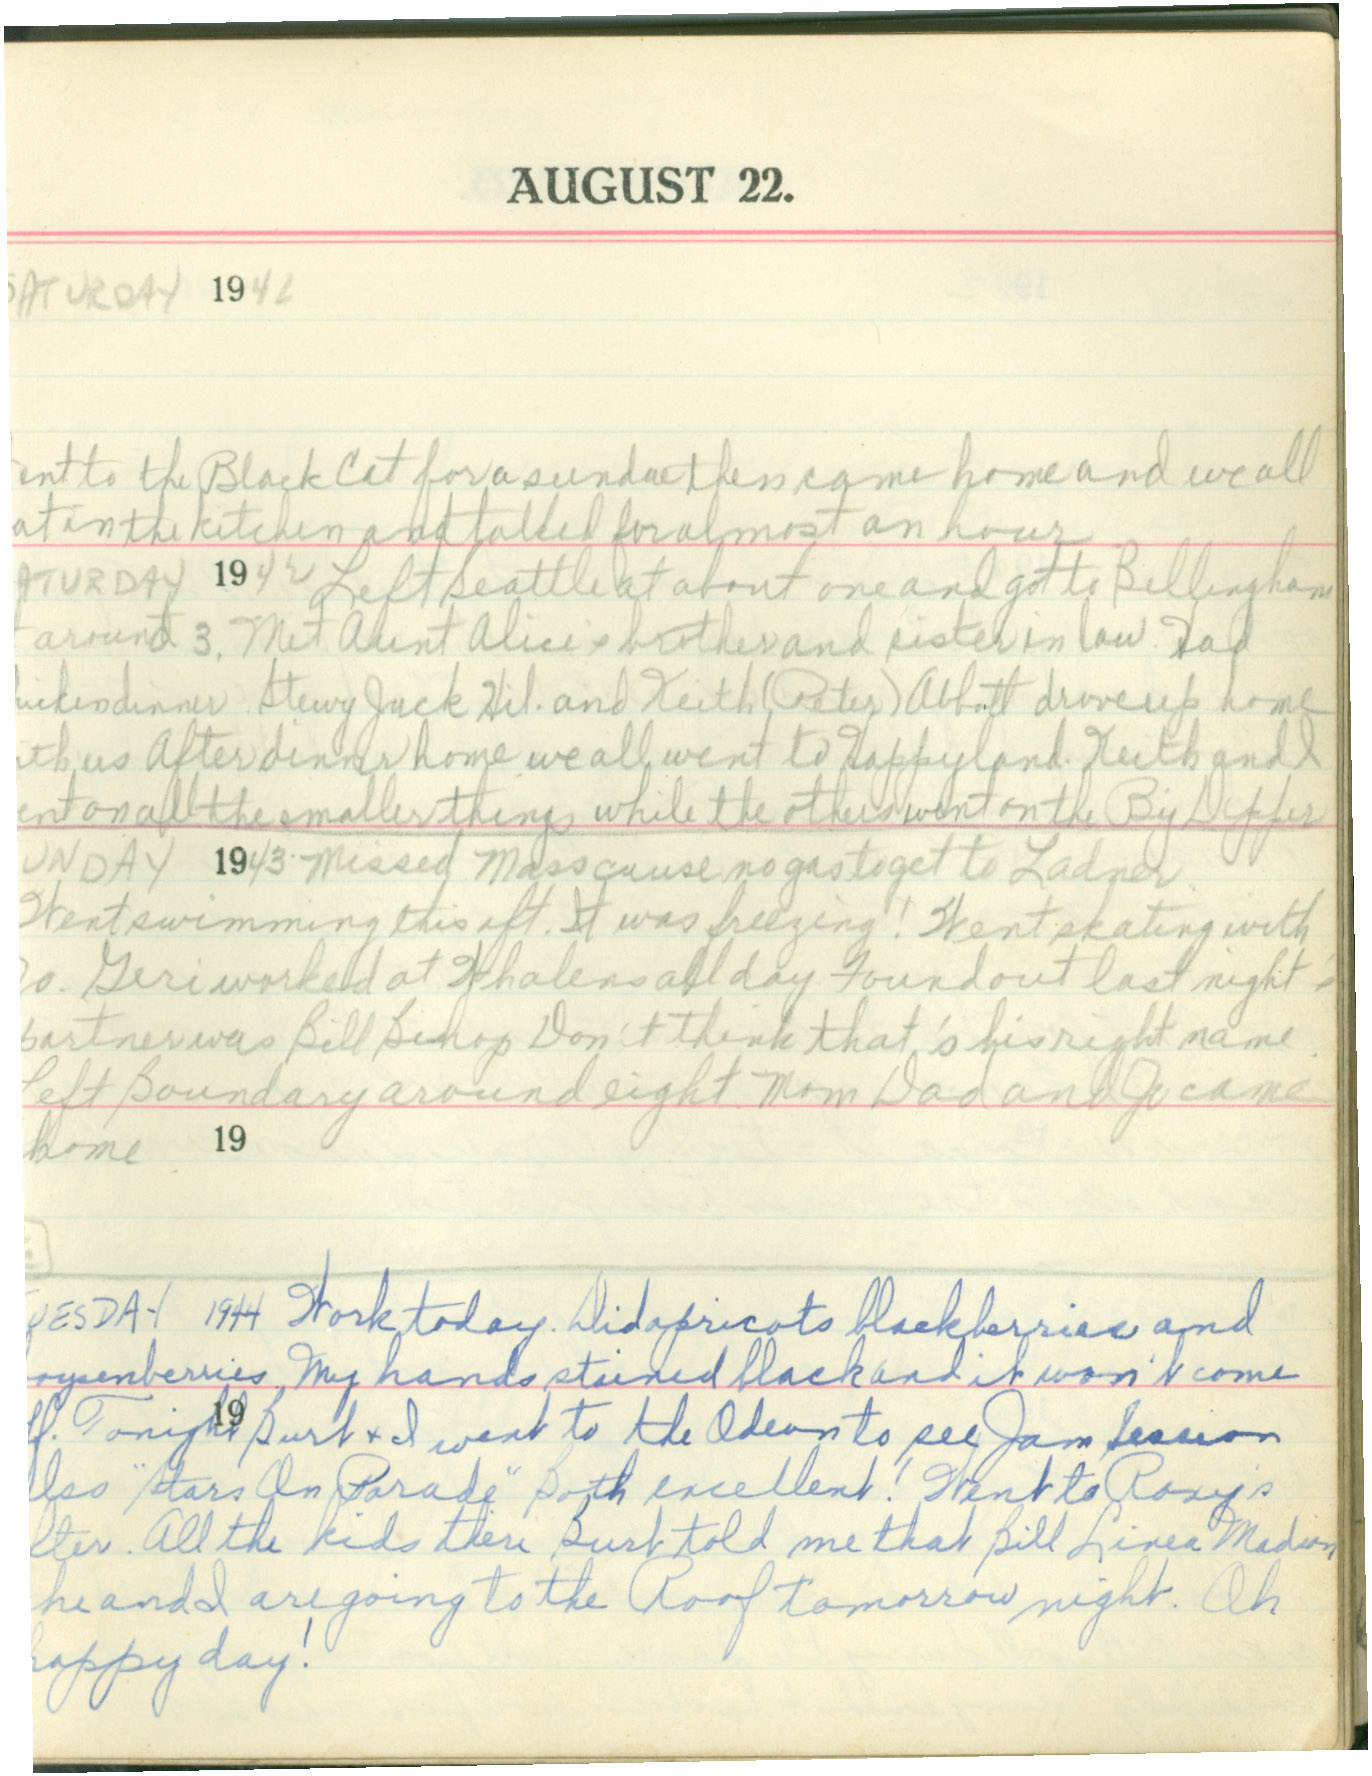 AUGUST 22.
SATURDAY 1942
ent to the Black Cat for a sundae then came home and we all
at in the kitchen and talked for almost an hour
ATURDAY 1942 Left Seattle at about one and got to Bellingham
around 3. Met Aunt Alice's brother and sister in law. Had
hicken dinner. Stewy Jack Hil. and Keith (Pater) Abbott drove up home
ith us After dinner home we all went to Happyland. Keith and I
ent on all the smaller things while the others went on the Big Dipper
UNDAY 1943. Missed Mass cause no gas to get to Ladner.
Went swimming this aft. It was freezing! Went skating with
Jo. Geri worked at Whalens all day Found out last night's
partner was Bill Bishop Don't think that's his right name.
Left Boundary around eight Mom Dad and Jo came
home 19
UESDAY 1944 Work today. Did apricots blackberries and
oysenberries. My hands stained black and it won't come
ff. Tonight Burt & I went to the Odeon to see Jam Session
19
lso "Stars On Parade" Both excellent! Went to Roxy's
fter. All the kids there Burt told me that Bill Linea Madson
he and I are going to the Roof tomorrow night. Oh
happy day!